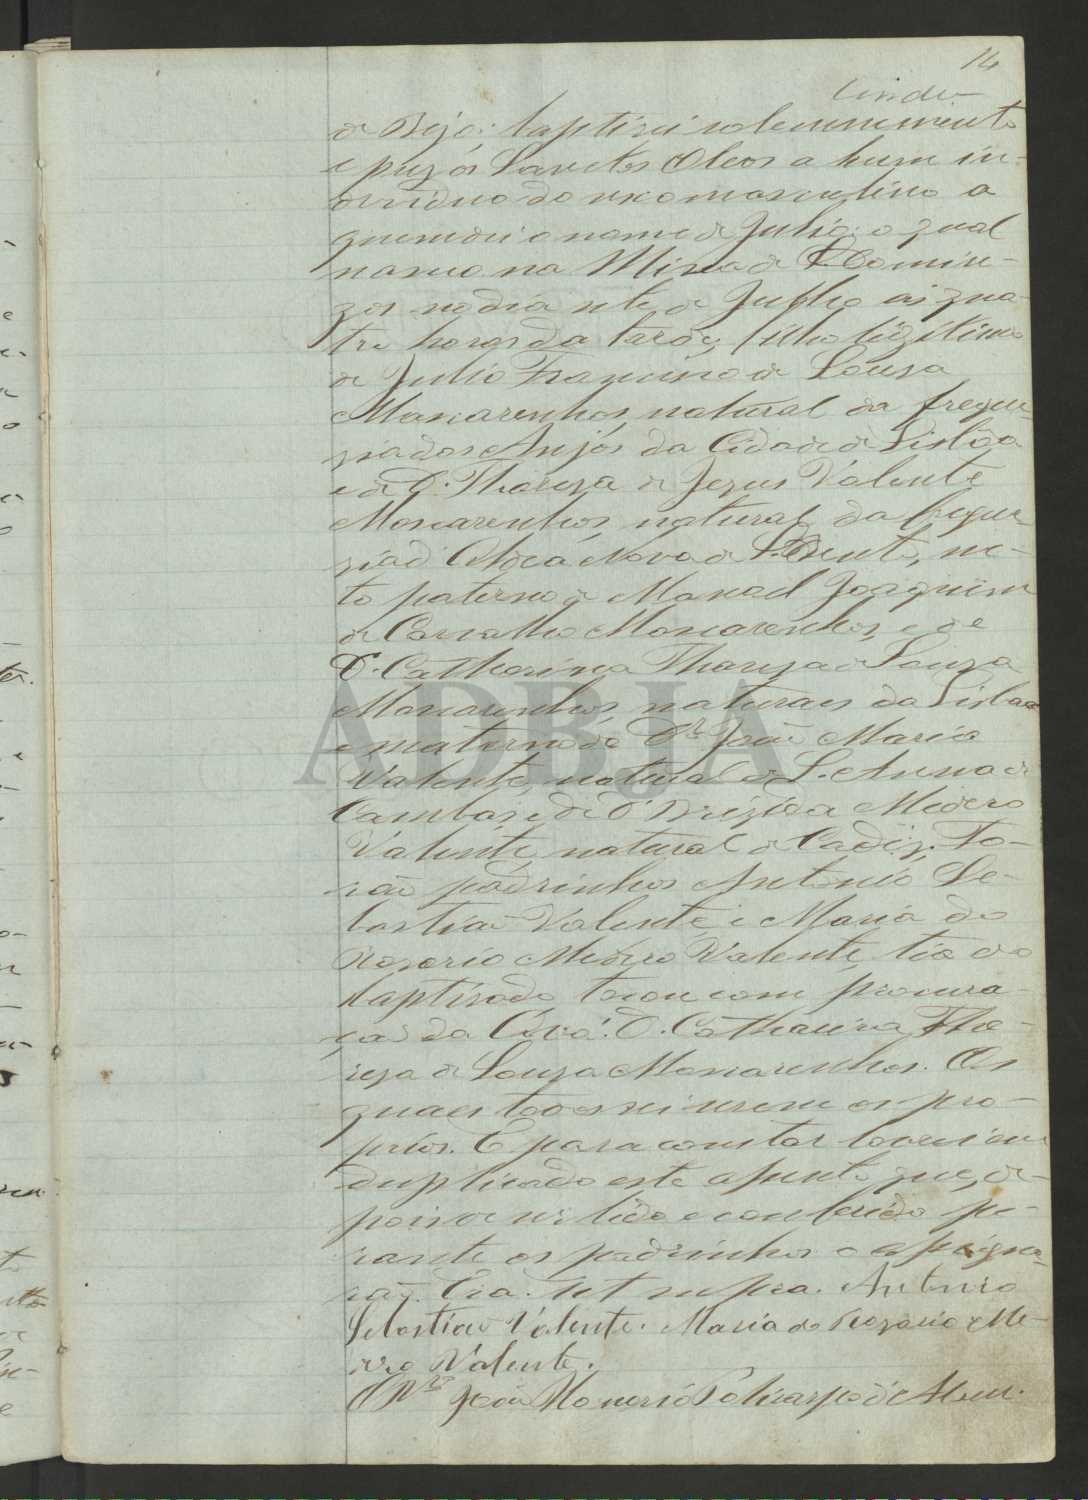 14
de Beja; baptizei solemnemente
e puz os Sanctos Oleos a hum in-
dividuo do sexo masculino a
quem dei o nome de Julio; o qual
nasceo na Mina de S. Domin-
gos no dia sete de Julho as qua-
tro horas da tarde, filho legitimo
de Julio de Souza
Mascarenhas, natural da fregue-
zia dos Anjos da Cidade de Lisboa
e de D. Thereza de Jezus Valente
Mascarenhas, natural da fregue-
zia d'Aldeã Nova de S. Bento, ne-
to paterno de Manoel Joaquim
de Carvalho Mascarenhas, e de
D. Catharina Thareza de Souza
Mascarenhas, naturaes da Lisboa
e materno de Dr. João Maria
Valente, natural de S. Anna de
Cambas, e de D. Brizida Medero
Valente, natural de Cadiz. Fo-
rão padrinhos Antonio Se-
bastião Valente e Maria do
Rosario Medero Valente, tia do
baptisado, tocou com procura-
ção da Avó: D. Catharina The-
reza de Souza Mascarenhas. Os
quaes todos sei serem os pro-
prios. E para constar lavrei em
duplicado este assento que, de-
pois de ser lido e conferido pe-
rante os padrinhos o assigna-
rão. Era. Ut supra. Antonio
Sebastião Valente. Maria do Rozario Me-
dero Valente.
João Policarpo d'
ADBJA